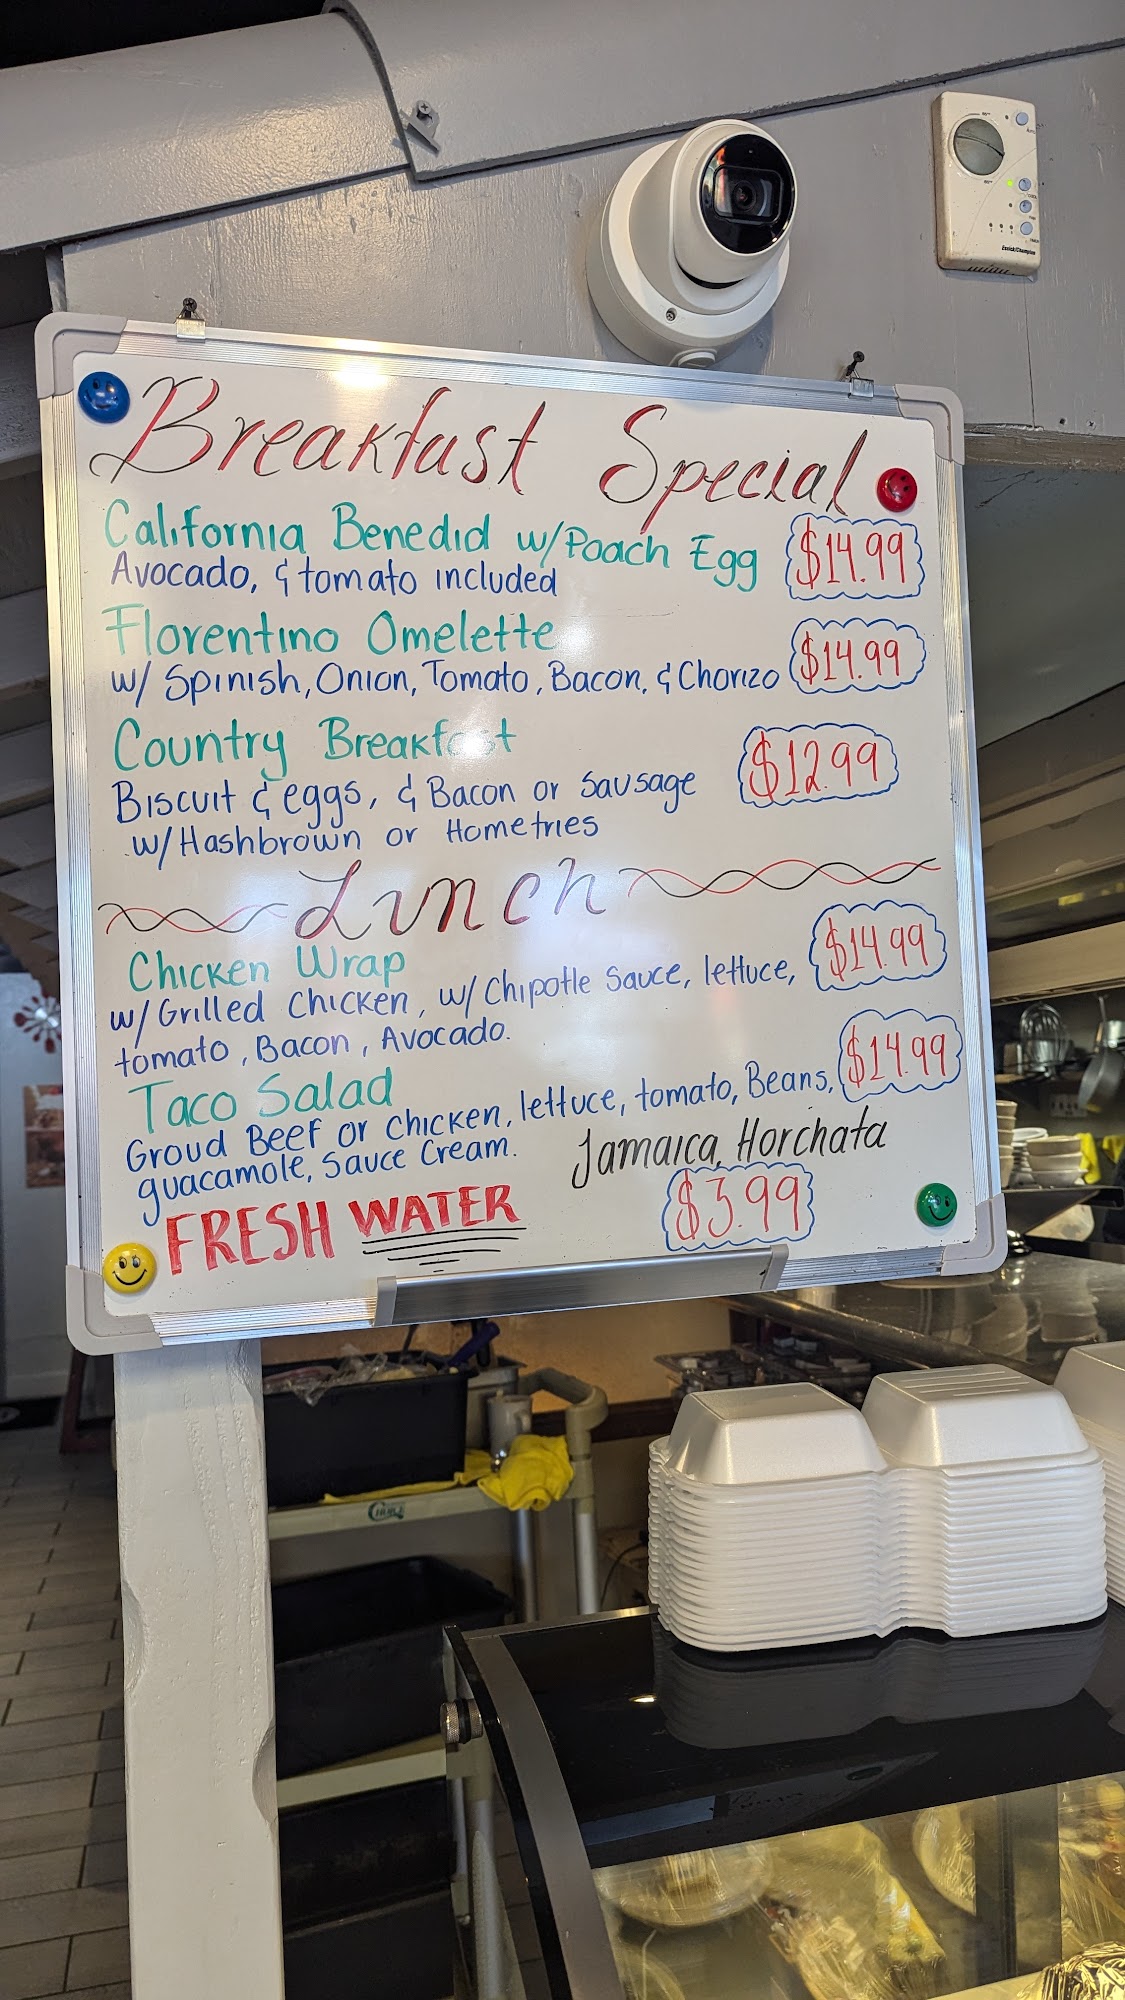 Breakfast Special
California Benedid w/Poach Egg $14.99
Avocado, & tomato included
Florentino Omelette $14.99
w/ Spinish, Onion, Tomato, Bacon, & Chorizo
Country Breakfast $12.99
Biscuit & eggs, & Bacon or Sausage
w/Hashbrown or Homefries
Lunch
Chicken Wrap $14.99
w/Grilled Chicken, w/Chipotle Sauce, lettuce,
tomato, Bacon, Avocado.
Taco Salad $14.99
Groud Beef or chicken, lettuce, tomato, Beans,
guacamole, Sauce Cream.
Jamaica, Horchata
FRESH WATER $3.99